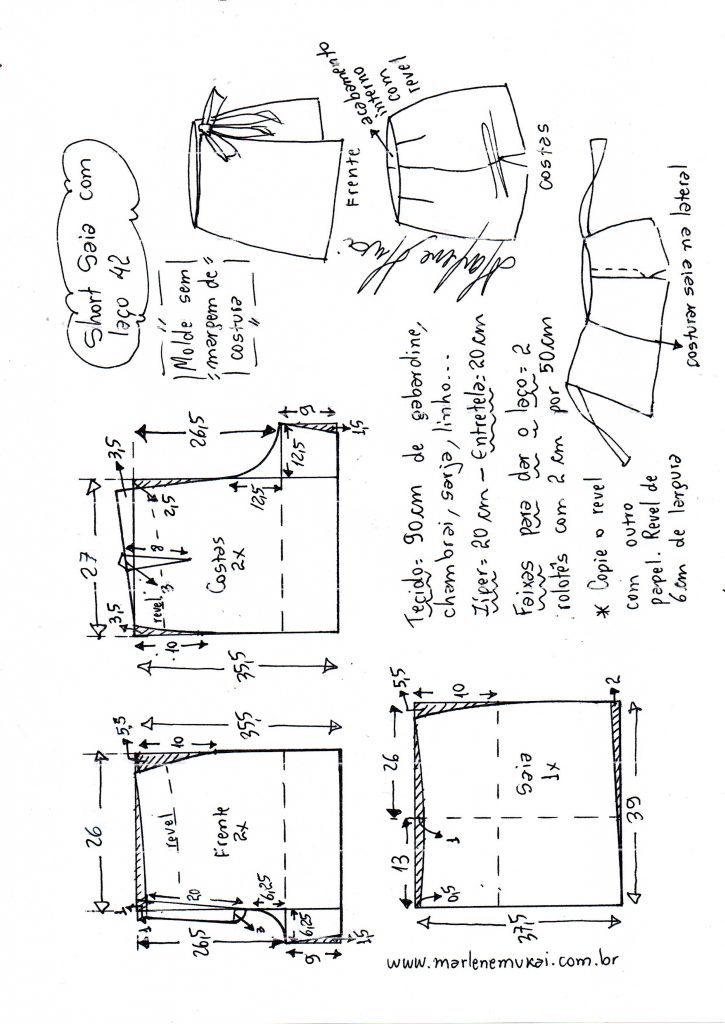 Short Saia com
laço 42
Molde sem
margem de
costura
acabamento
interno
com
revel
Frente
costas
Marlene Mukai
costurar saia na lateral
Tecido= 90cm de gabardine,
chambrai, sarja, linho...
Zíper= 20cm - Entretela= 20cm
Faixas para dar o laço = 2
rolotês com 2cm por 50cm
* Copie o revel
com outro
papel. Revel de
6cm de largura
27
3,5
3,5
2,5
8
3
revel
10
35,5
Costas
2x
26,5
12,5
12,5
9
1,5
26
5,5
10
35,5
revel
Frente
2x
1
1
20
3
26,5
6,25
6,25
9
1,5
26
13
5,5
10
0,5
1
Saia
1x
37,5
39
2
www.marlenemukai.com.br